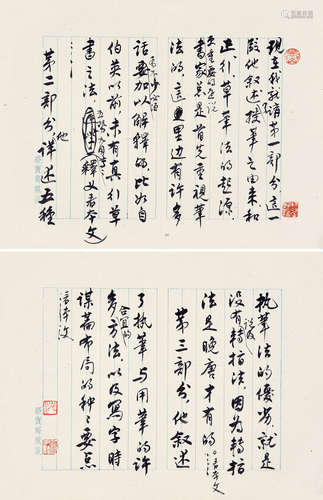 现在我就讲第一部分,这一
段他叙述授笔之由来,和
正行、草草法的起源。
书家总是首先重视笔
法的,这里里边有许多
话要加以解释的,比如自
伯英以前未有真行草
书之法,
释义看本文
第二部分他详述五种
执笔法的优劣,就是
没有转指法,因为转指
法是晚唐才有的。看本文
第三部分,他叙述
了执笔与用笔的许
多方法以及写字时
谋篇布局的种种要点
看本文